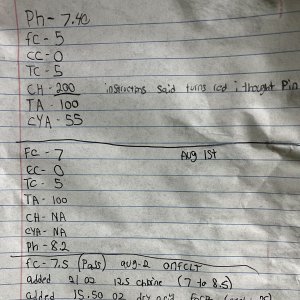 Ph - 7.40
fC - 5
CC - 0
TC - 5
CH - 200 instructions said turns red i thought Pin
TA - 100
CYA - 55
FC - 7 Aug 1st
CC - 0
TC - 5
TA - 100
CH - NA
CYA - NA
Ph - 8.2
fc - 7.5 (Pass) aug-2 onFCLT
added 21 oz 12.5 chlorine (7 to 8.5)
added 15.50 oz dry acid